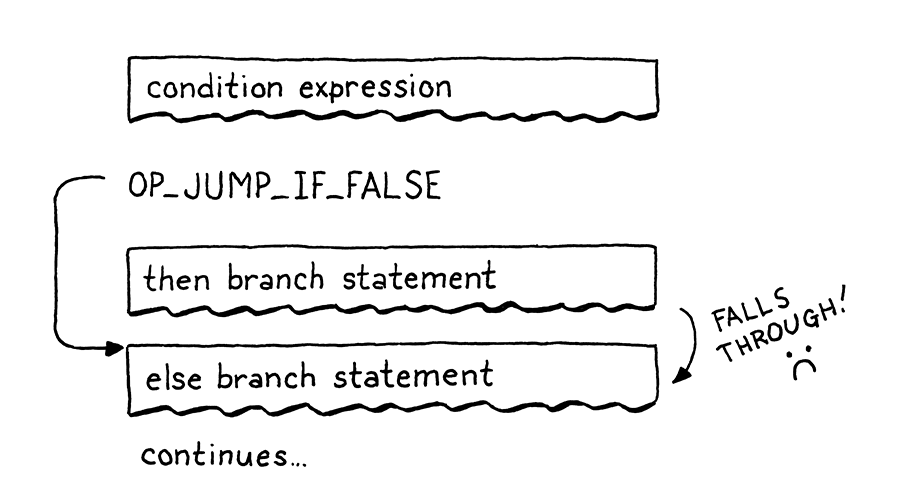 condition expression
OP_JUMP_IF_FALSE
then branch statement
FALLS
THROUGH!
else branch statement
continues...